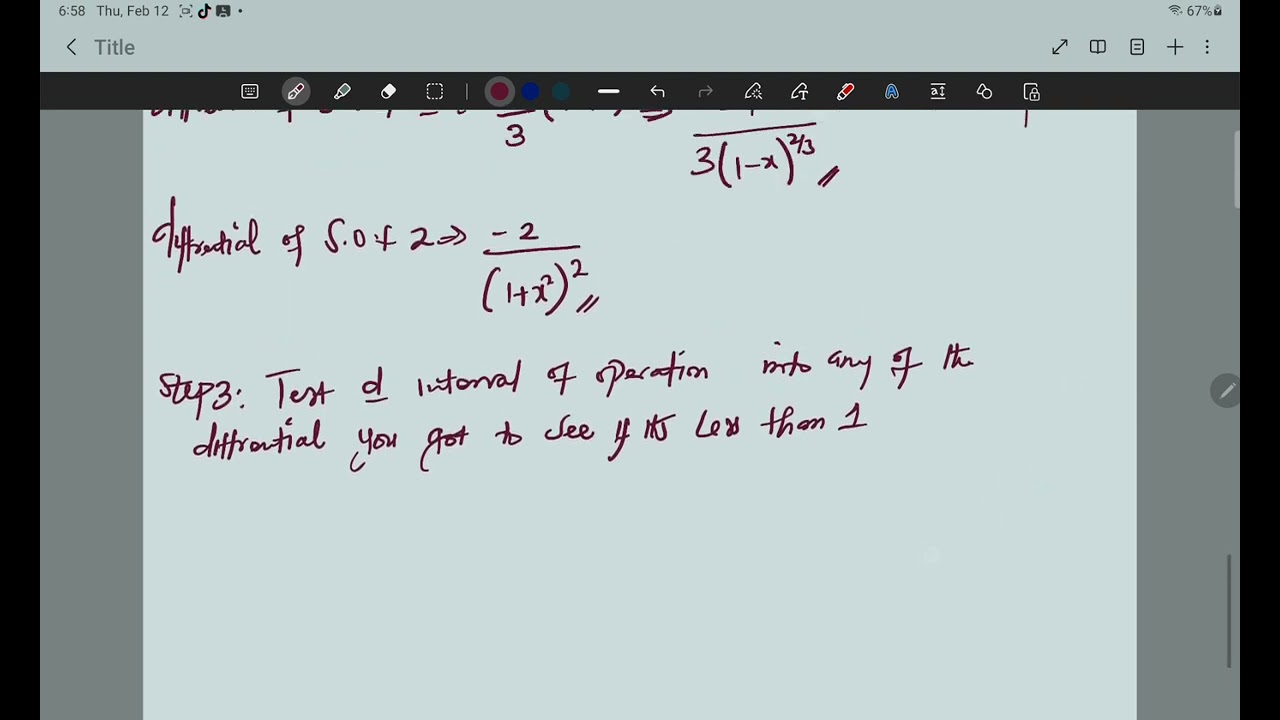 6:58 Thu, Feb 12
67%
Title
3
3(1-x)^2/3
diffrential of S.O.f 2 => -2
(1+x²)²
Step 3: Test d interval of operation into any of the
diffrential you got to see if its Less than 1